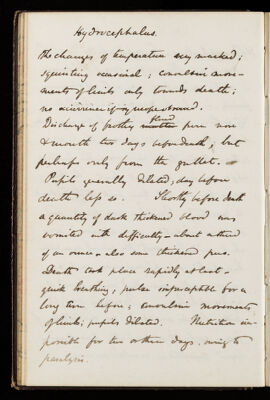 Hydrocephalus.
the changes of temperature very marked;
squinting occasional; convulsive move-
ments of limbs only towards death;
no
Discharge of frothy blood from nose
& mouth two days before death, but
perhaps only from the gullet.
Pupils generally dilated; day before
death less so. Shortly before death
a quantity of dark thickened blood was
vomited with difficulty – about a third
of an ounce – also some thickened pus.
Death took place rapidly at last –
quick breathing, pulse imperceptible for a
long time before; convulsive movements
of limbs; pupils dilated. Nutrition im-
possible for two or three days owing to
paralysis.